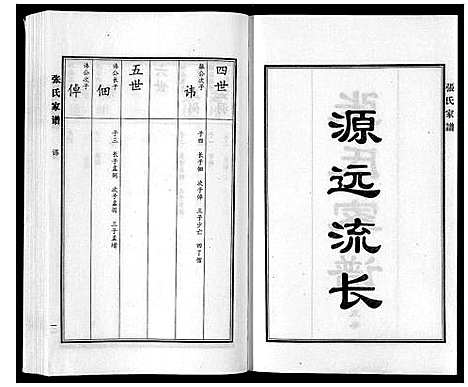 張氏家譜
源远流长
四世
讳
子四 长子佃 次子倬 三子少亡 四子
五世
讳公长子
佃
子三 长子孟 次子孟 三子孟
讳公次子
倬
张氏家谱
一